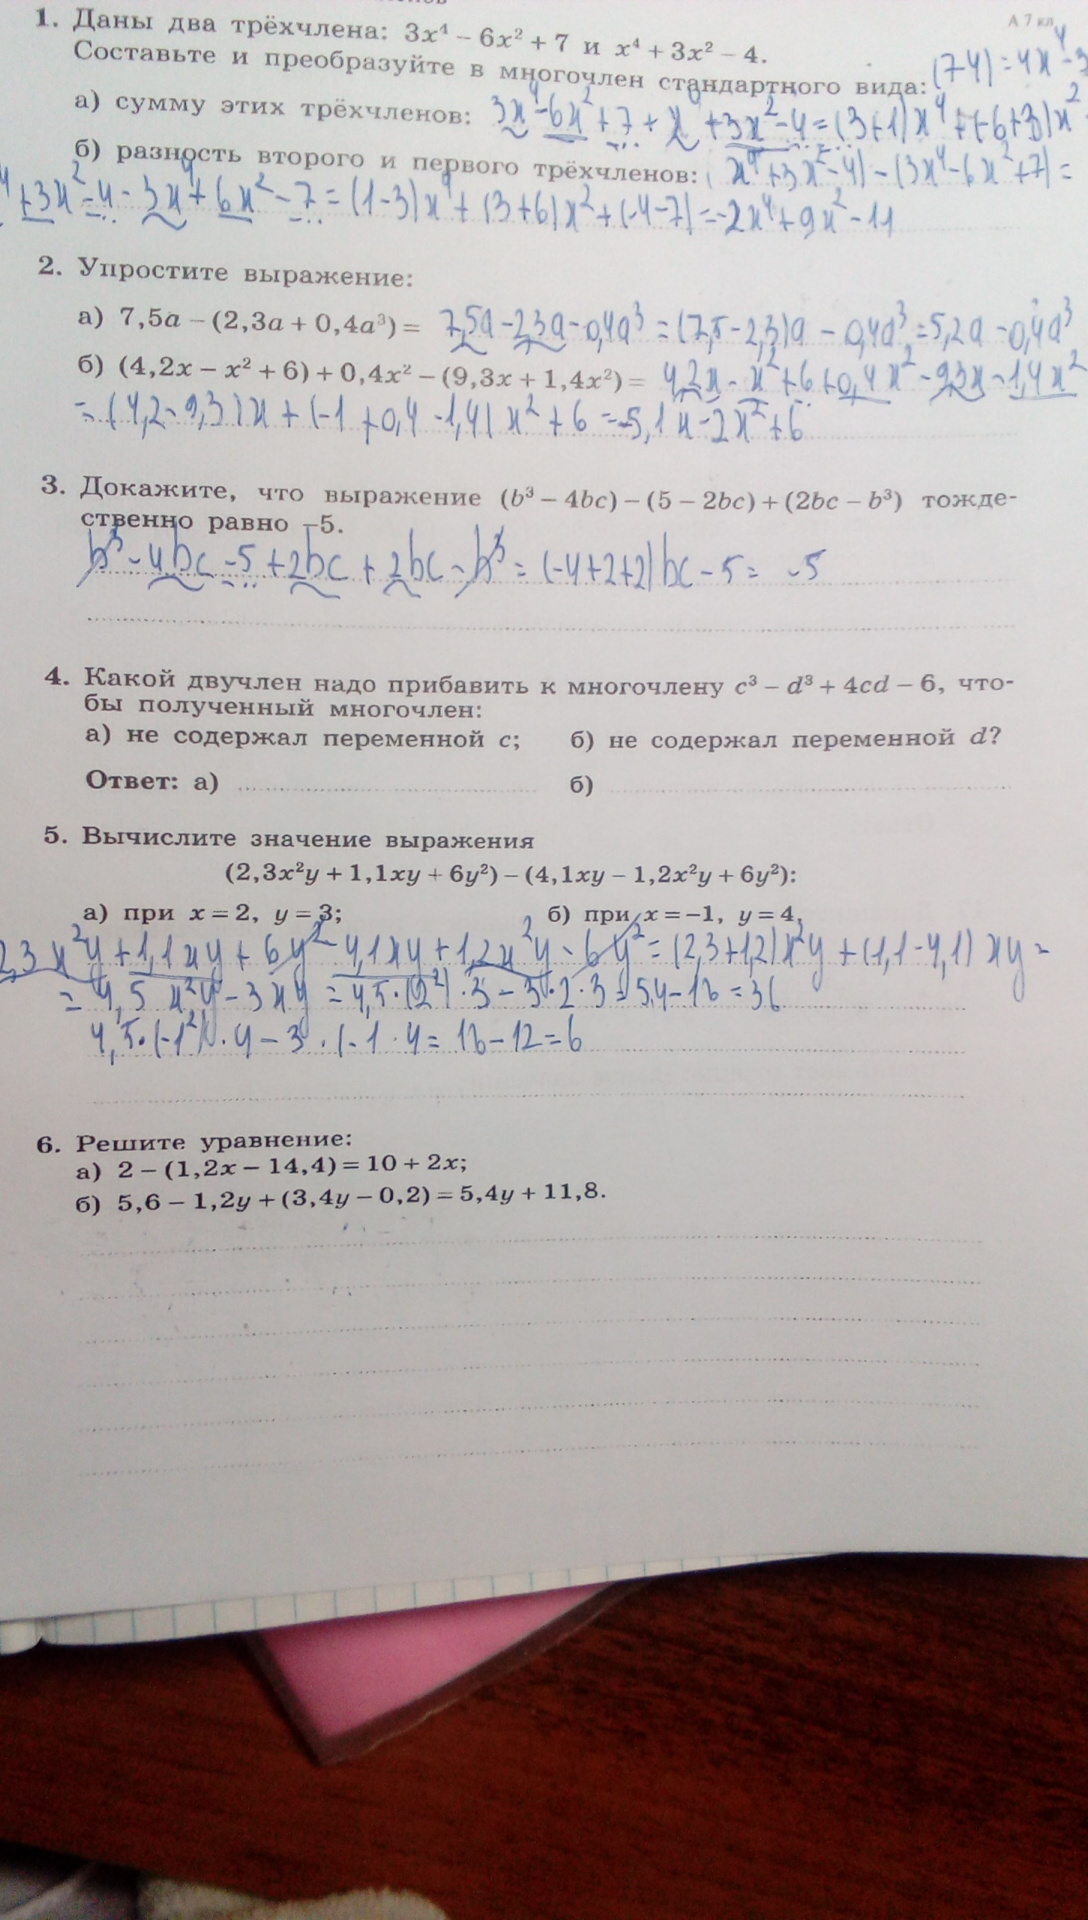 А 7 кл
1. Даны два трёхчлена: 3x⁴ − 6x² + 7 и x⁴ + 3x² − 4.
Составьте и преобразуйте в многочлен стандартного вида: (7-4) = 4x⁴-3
а) сумму этих трёхчленов: 3x⁴-6x²+7+x⁴+3x²-4=(3+1)x⁴+(-6+3)x²
б) разность второго и первого трёхчленов: (x⁴+3x²-4)-(3x⁴-6x²+7)=
+3x²-4-3x⁴+6x²-7=(1-3)x⁴+(3+6)x²+(-4-7)=-2x⁴+9x²-11
2. Упростите выражение:
а) 7,5a − (2,3a + 0,4a³) = 7,5a-2,3a-0,4a³=(7,5-2,3)a-0,4a³=5,2a-0,4a³
б) (4,2x − x² + 6) + 0,4x² − (9,3x + 1,4x²) = 4,2x-x²+6+0,4x²-9,3x-1,4x²
=(4,2-9,3)x+(-1+0,4-1,4)x²+6=-5,1x-2x²+6
3. Докажите, что выражение (b³ − 4bc) − (5 − 2bc) + (2bc − b³) тожде-
ственно равно −5.
b³-4bc-5+2bc+2bc-b³=(-4+2+2)bc-5= -5
4. Какой двучлен надо прибавить к многочлену c³ − d³ + 4cd − 6, что-
бы полученный многочлен:
а) не содержал переменной c; б) не содержал переменной d?
Ответ: а) б)
5. Вычислите значение выражения
(2,3x²y + 1,1xy + 6y²) − (4,1xy − 1,2x²y + 6y²):
а) при x = 2, y = 3; б) при x = −1, y = 4.
2,3x²y+1,1xy+6y²-4,1xy+1,2x²y-6y²=(2,3+1,2)x²y+(1,1-4,1)xy=
=4,5x²y-3xy=4,5·(2²)·3-3·2·3=54-18=36
4,5·(-1²)·4-3·(-1·4=18-12=6
6. Решите уравнение:
а) 2 − (1,2x − 14,4) = 10 + 2x;
б) 5,6 − 1,2y + (3,4y − 0,2) = 5,4y + 11,8.